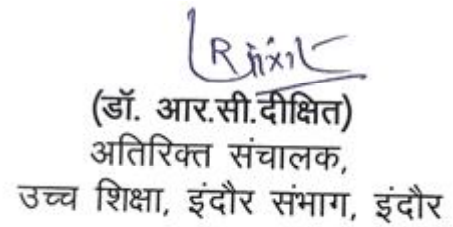 (डॉ. आर.सी.दीक्षित)
अतिरिक्त संचालक,
उच्च शिक्षा, इंदौर संभाग, इंदौर